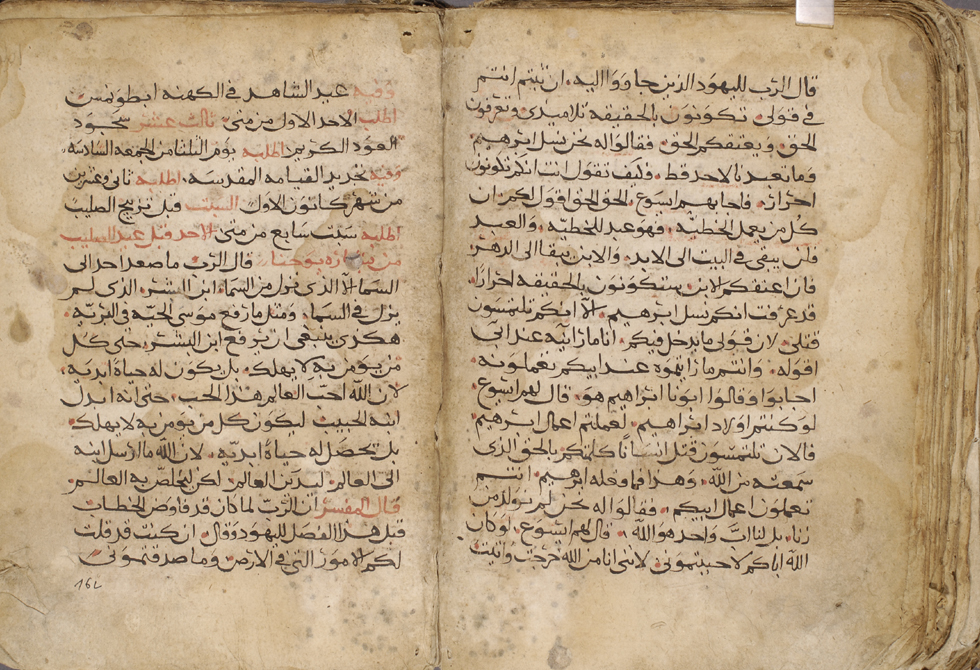 قال الرب لليهود الذين جاووا اليه ان ثبتم انتم
في قولي تكونون بالحقيقه تلاميذي وتعرفون
الحق ويعتقكم الحق فقالوا له نحن نسل ابرهيم
وما تعبدنا لاحد قط وكيف تقول انت انكم تكونون
احرارا فاجابهم ايسوع الحق الحق اقول لكم ان
كل من يعمل الخطيه فهو عبد للخطيه والعبد
فلن يبقى في البيت الى الابد والابن يبقا الى الدهر
فان اعتقكم الابن ستكونون بالحقيقه احرارا
قد عرفت انكم نسل ابرهيم الا انكم تلتمسون
قتلي لان قولي ما يدخل فيكم انا ما رايته عند ابي
اقوله وانتم ما رايتموه عند ابيكم تعملونه
اجابوا وقالوا ابونا ابراهيم هو قال لهم ايسوع
لو كنتم اولاد ابراهيم لعملتم اعمال ابرهيم
فالان تلتمسون قتل انسانا كلمتكم بالحق الذي
سمعته من الله وهذا فما فعله ابرهيم انتم
تعملون اعمال ابيكم فقالوا له نحن لم نولد من
زنا بل لنا اب واحد هو الله قال لهم ايسوع لو كان
الله اباكم لاحببتموني لانني انا من الله خرجت واتيت
وفيه عيد الشاهد في الكهنه
اطلبه الاحد الاول من متى ثالث عشر سجود
العود الكريم اطلبه يوم الثلثا من الجمعه السادسه
وفيه تجديد القيامه المقدسه اطلبه ثاني وعشرين
من شهر كانون الاول السبت قبل ترييح الصليب
اطلبه سبت سابع من متى الاحد قبل عيد الصليب
من بشارة يوحنا قال الرب ما صعد احد الى
السما الا الذي نزل من السما ابن البشر الذي لم
يزل في السما ومثل ما رفع موسى الحيه في البريه
هكذى ينبغي ان يرفع ابن البشر حتى كل
من يومن به لا يهلك بل يكون له حياة ابديه
لان الله احب العالم هذا الحب حتى انه ابدل
ابنه الحبيب ليكون كل من يومن به لا يهلك
بل تحصل له حياة ابديه لان الله ما ارسل ابنه
الى العالم ليدين العالم لكن ليخلص به العالم
قال المفسر ان الرب لما كان قد فاوض الخطاب
قبل هذا الفصل لليهود وقال ان كنت قد قلت
لكم الامور التي في الارض وما صدقتموني
162